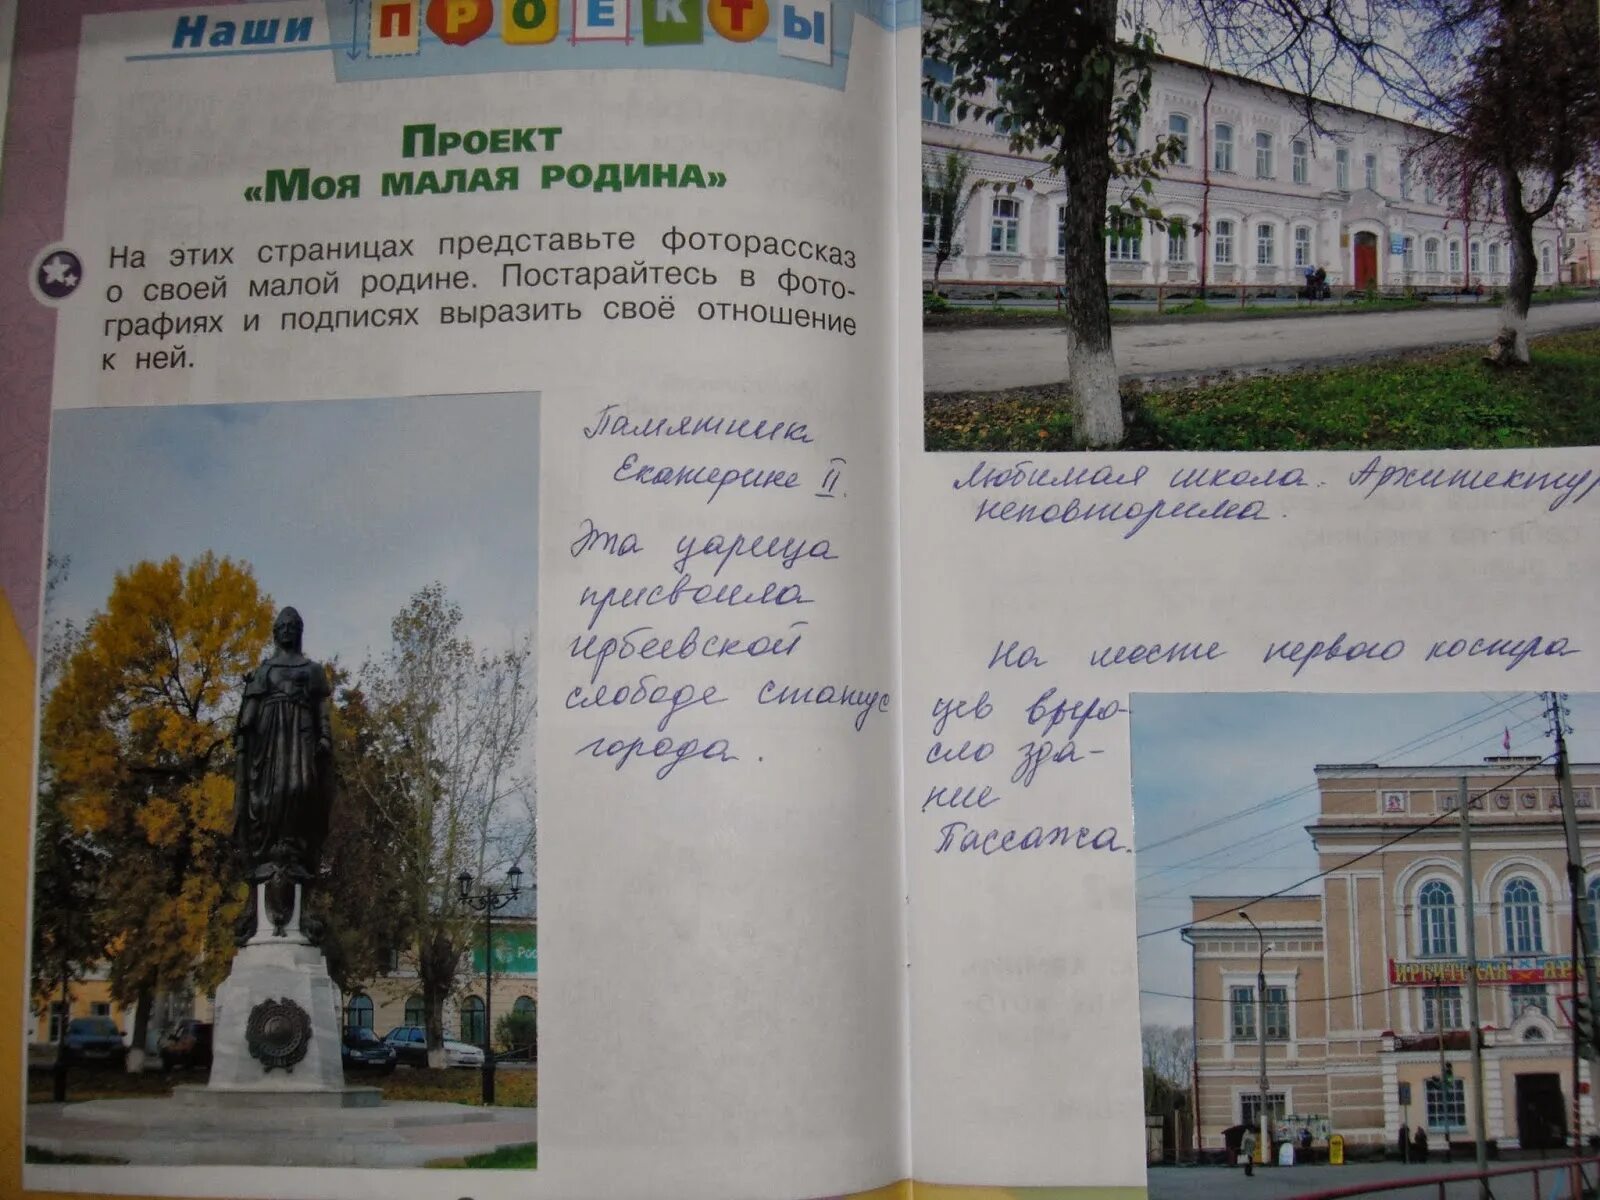 Наши ПРОЕКТЫ
ПРОЕКТ
«МОЯ МАЛАЯ РОДИНА»
На этих страницах представьте фоторассказ
о своей малой родине. Постарайтесь в фото-
графиях и подписях выразить своё отношение
к ней.
Памятник
Екатерине II.
Эта царица
присвоила
Ирбеевской
слободе статус
города.
Рос
Любимая школа. Архитектур
неповторима.
На месте первого костра
цев выро-
сло зда-
ние
Пассажа.
ПАССАЖ
ИРБИТСКАЯ ЯР